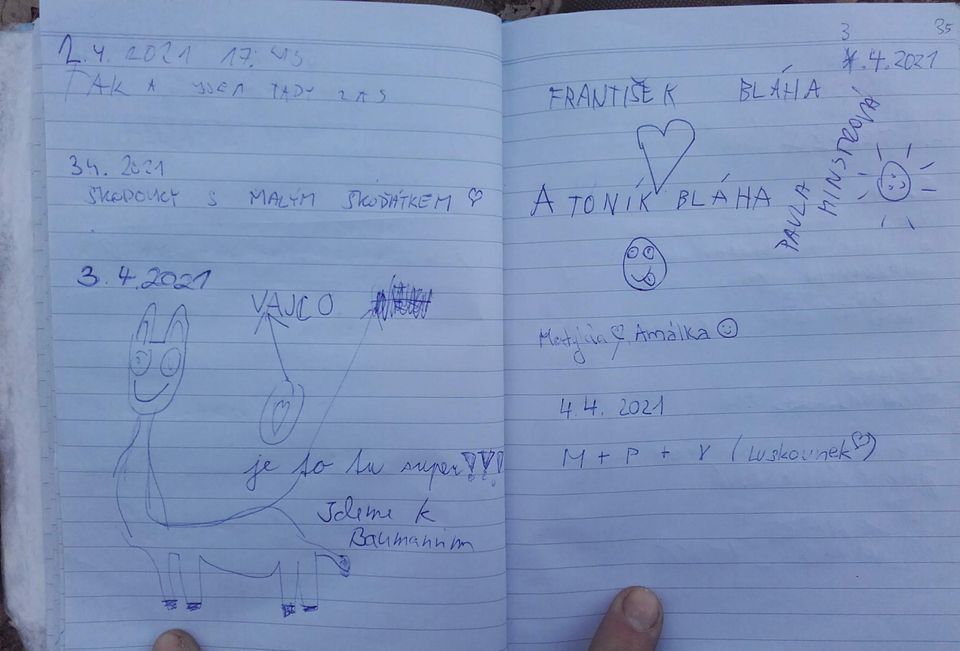 2.4. 2021 17:45
TAK A JSEM TADY ZAS
3.4. 2021
ŠKODOVKY S MALÝM ŠKOĎÁTKEM
3.4.2021
VAJCO
je to tu super!!!
Jdeme k
Baumannům
35
3
.4.2021
FRANTIŠEK BLÁHA
A TONÍK BLÁHA
PAVLA
MINSTROVÁ
Matyáš Amálka
4.4. 2021
M + P + V (Luskounek)